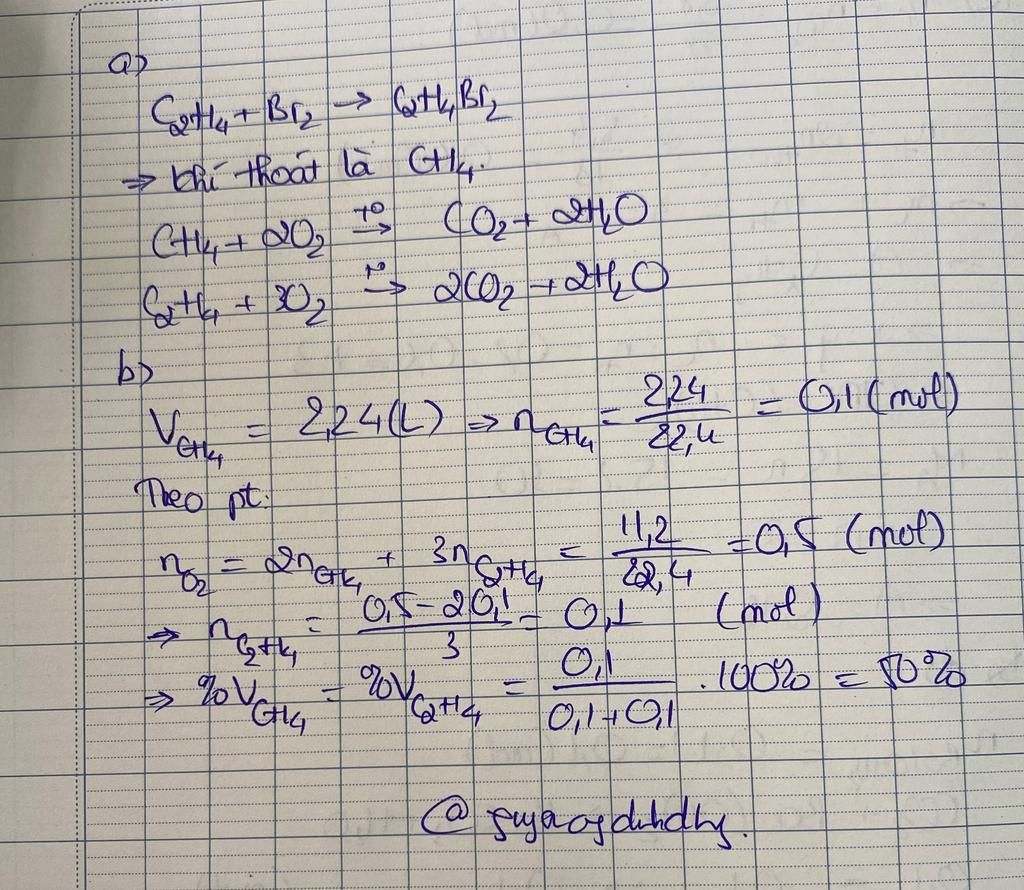 a)
C₂H₄ + Br₂ → C₂H₄Br₂
⇒ khí thoát là CH₄.
CH₄ + 2O₂ →(t°) CO₂ + 2H₂O
C₂H₄ + 3O₂ →(t°) 2CO₂ + 2H₂O
b)
V_CH₄ = 2,24(L) ⇒ n_CH₄ = 2,24/22,4 = 0,1 (mol)
Theo pt:
n_O₂ = 2n_CH₄ + 3n_C₂H₄ = 11,2/22,4 = 0,5 (mol)
⇒ n_C₂H₄ = (0,5 - 2.0,1)/3 = 0,1 (mol)
⇒ %V_CH₄ = %V_C₂H₄ = 0,1/(0,1+0,1) .100% = 50%
@